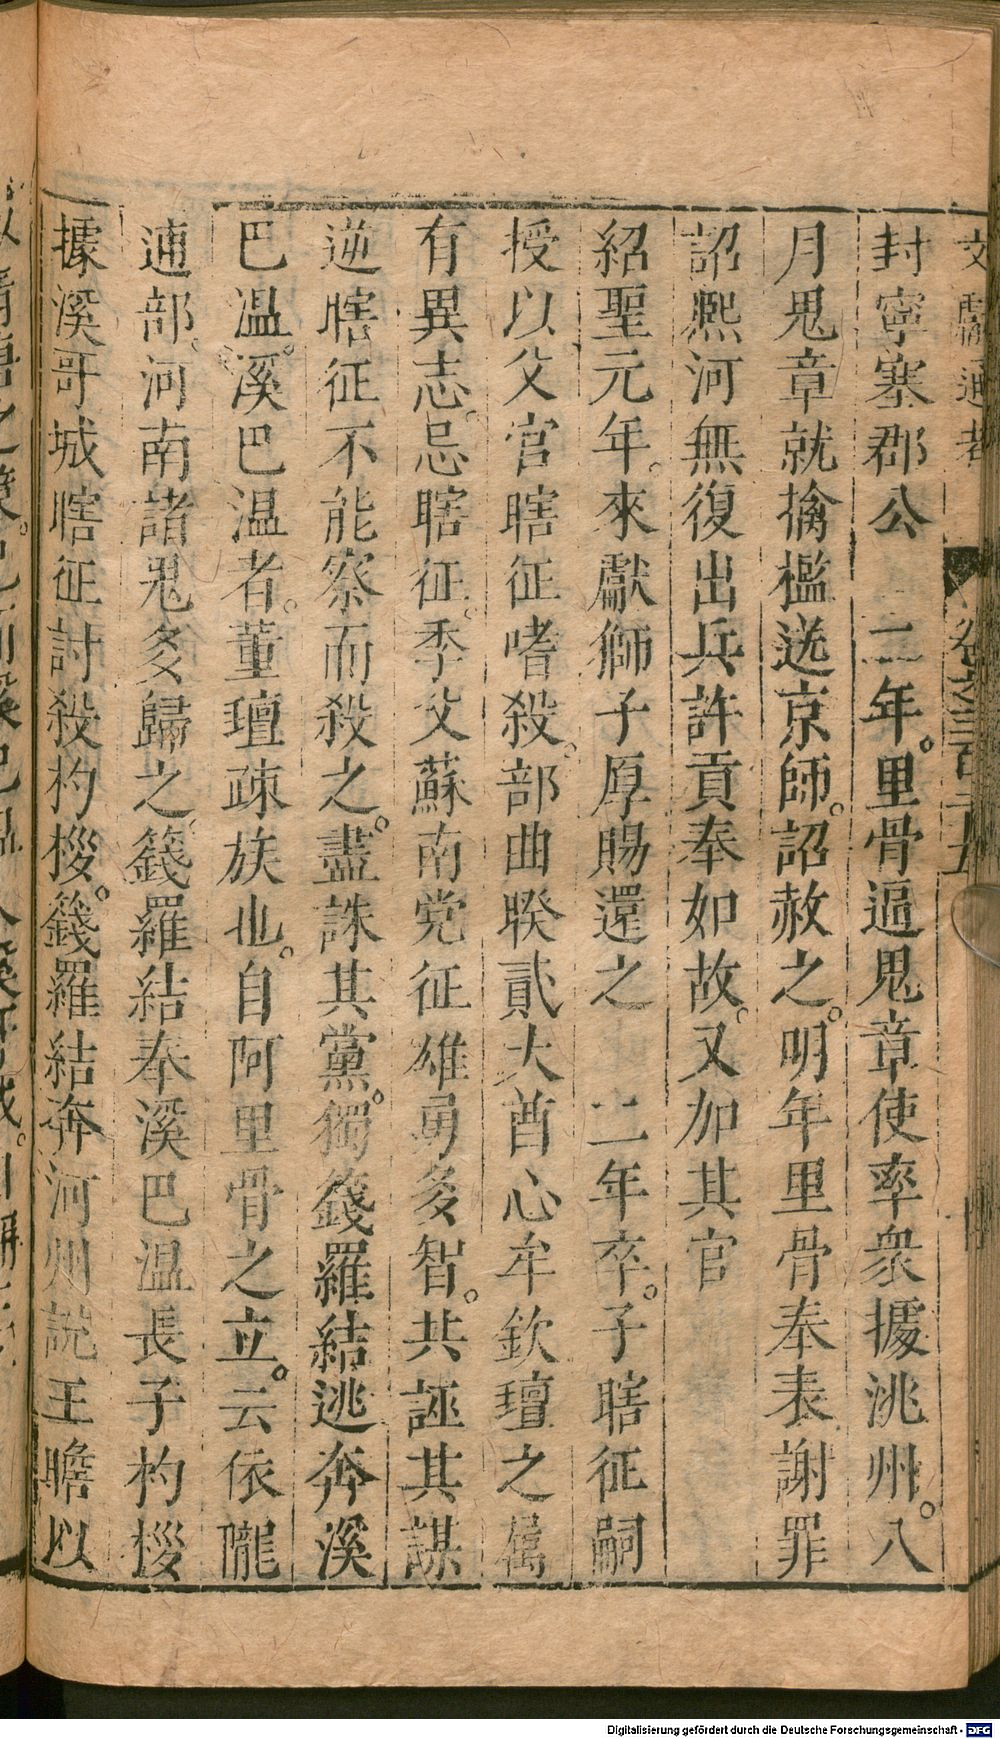 文獻通考 卷之三百三十五
封寧塞郡公 二年。里骨逼鬼章使率衆據洮州。八
月鬼章就擒檻送京師。詔赦之。明年里骨奉表謝罪
詔熙河無復出兵許貢奉如故。又加其官
紹聖元年。來獻獅子厚賜還之 二年卒。子瞎征嗣
授以父官瞎征嗜殺。部曲睽貳大酋心牟欽㲉之屬
有異志。忌瞎征。季父蘇南党征雄勇多智。共誣其謀
逆瞎征不能察而殺之。盡誅其黨。獨籛羅結逃奔溪
巴温。溪巴温者。董氊疎族也。自阿里骨之立。云依隴
逋部。河南諸羌多歸之籛羅結奉溪巴温長子杓拶
據溪哥城瞎征討殺杓拶。籛羅結奔河州説王瞻以
Digitalisierung gefördert durch die Deutsche Forschungsgemeinschaft - DFG